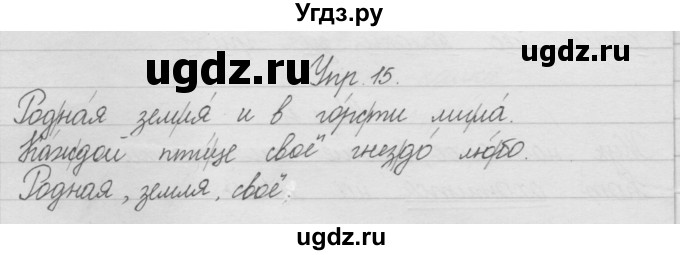 Угдз.ру
ugdz.ru
ugdz.ru
Упр. 15.
Родна́я земля́ и в го́рсти мила́.
Ка́ждой пти́це своё гнездо́ лю́бо.
Родная, земля, своё.
ugdz.ru
ugdz.ru